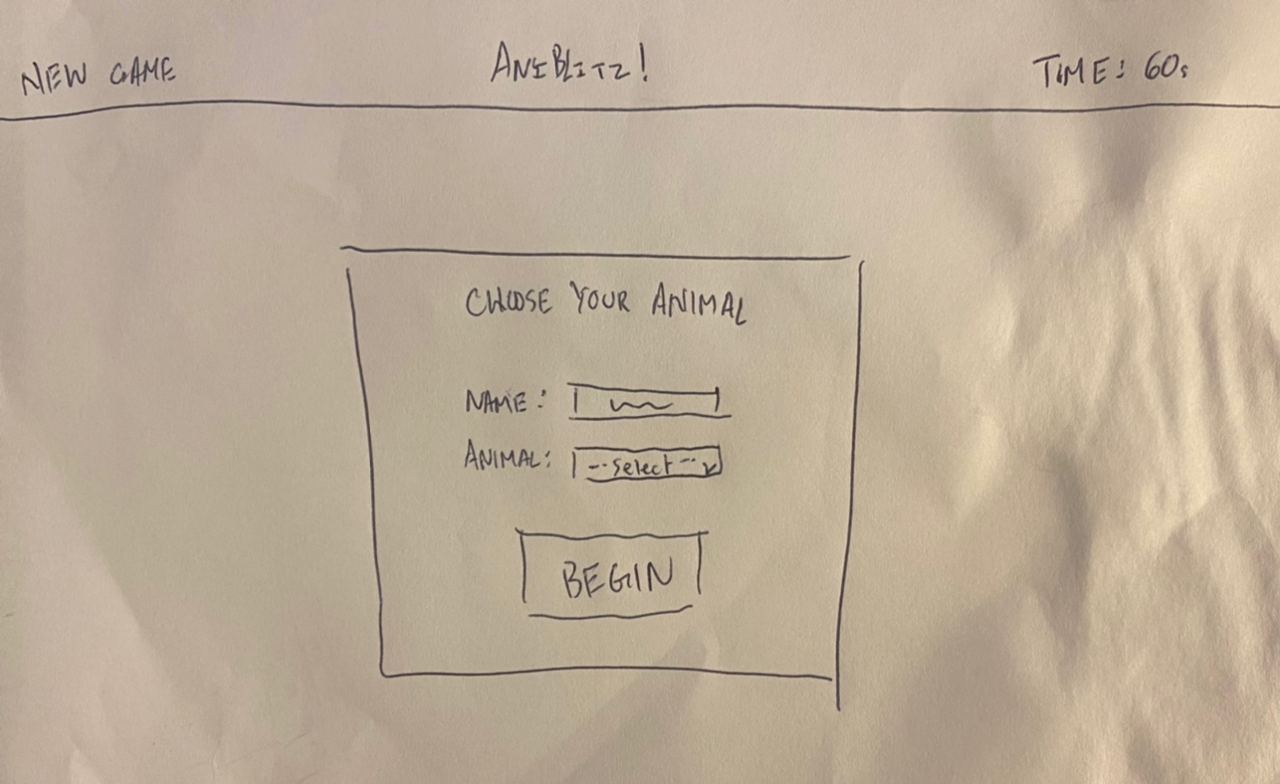 NEW GAME
ANIBLITZ!
TIME: 60s
CHOOSE YOUR ANIMAL
NAME:
ANIMAL: --select--
BEGIN